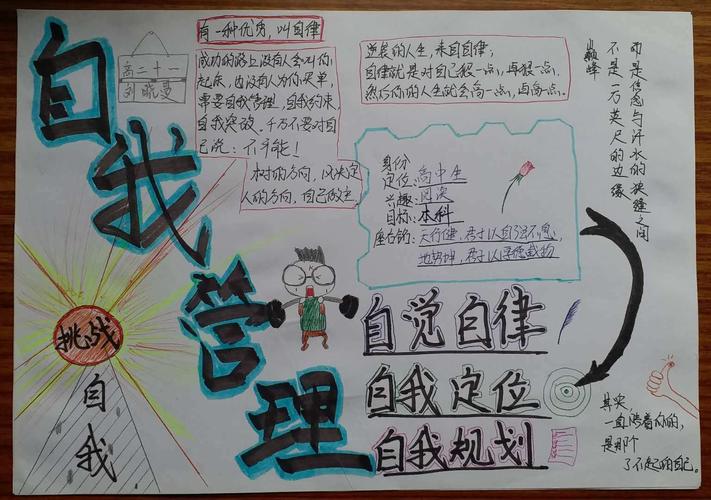 自我管理
高二十一
刘晓曼
有一种优秀,叫自律
成功的路上没有人会叫你
起床,也没有人为你买单,
需要自我管理,自我约束,
自我突破。千万不要对自
己说:不可能!
树的方向,风决定
人的方向,自己做主。
逆袭的人生,来自自律;
自律就是对自己狠一点,再狠一点,
然后你的人生就会高一点,再高一点。
巅峰
不是一万英尺的边缘
却是信念与汗水的狭缝之间
身份
定位:高中生
兴趣:阅读
目标:本科
座右铭:天行健,君子以自强不息,
地势坤,君子以厚德载物
挑战
自我
自觉自律
自我定位
自我规划
其实,
一直陪着你的,
是那个
了不起的自己。